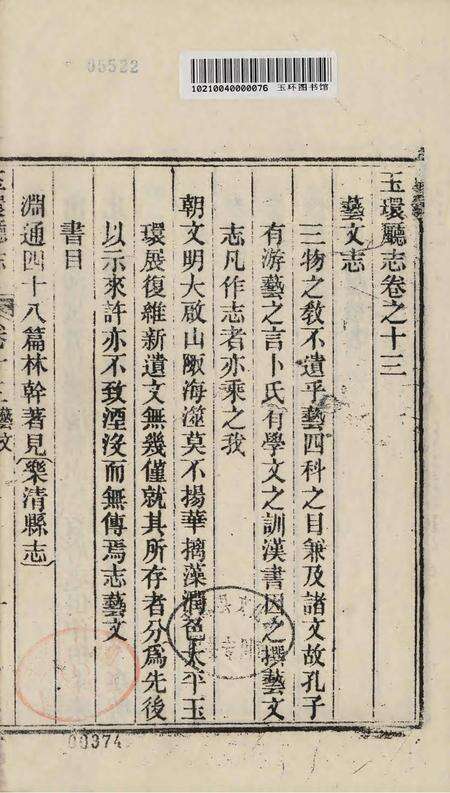 05522
10210040000076 玉环图书馆
玉環廳志卷之十三
藝文志
三物之敎不遺乎藝四科之目兼及諸文故孔子
有游藝之言卜氏有學文之訓漢書因之撰藝文
志凡作志者亦乘之我
朝文明大啟山陬海澨莫不揚華摛藻潤色太平玉
環展復維新遺文無幾僅就其所存者分爲先後
以示來許亦不致湮沒而無傳焉志藝文
書目
淵通四十八篇林幹著見樂清縣志
玉環廳志
藝文
00374